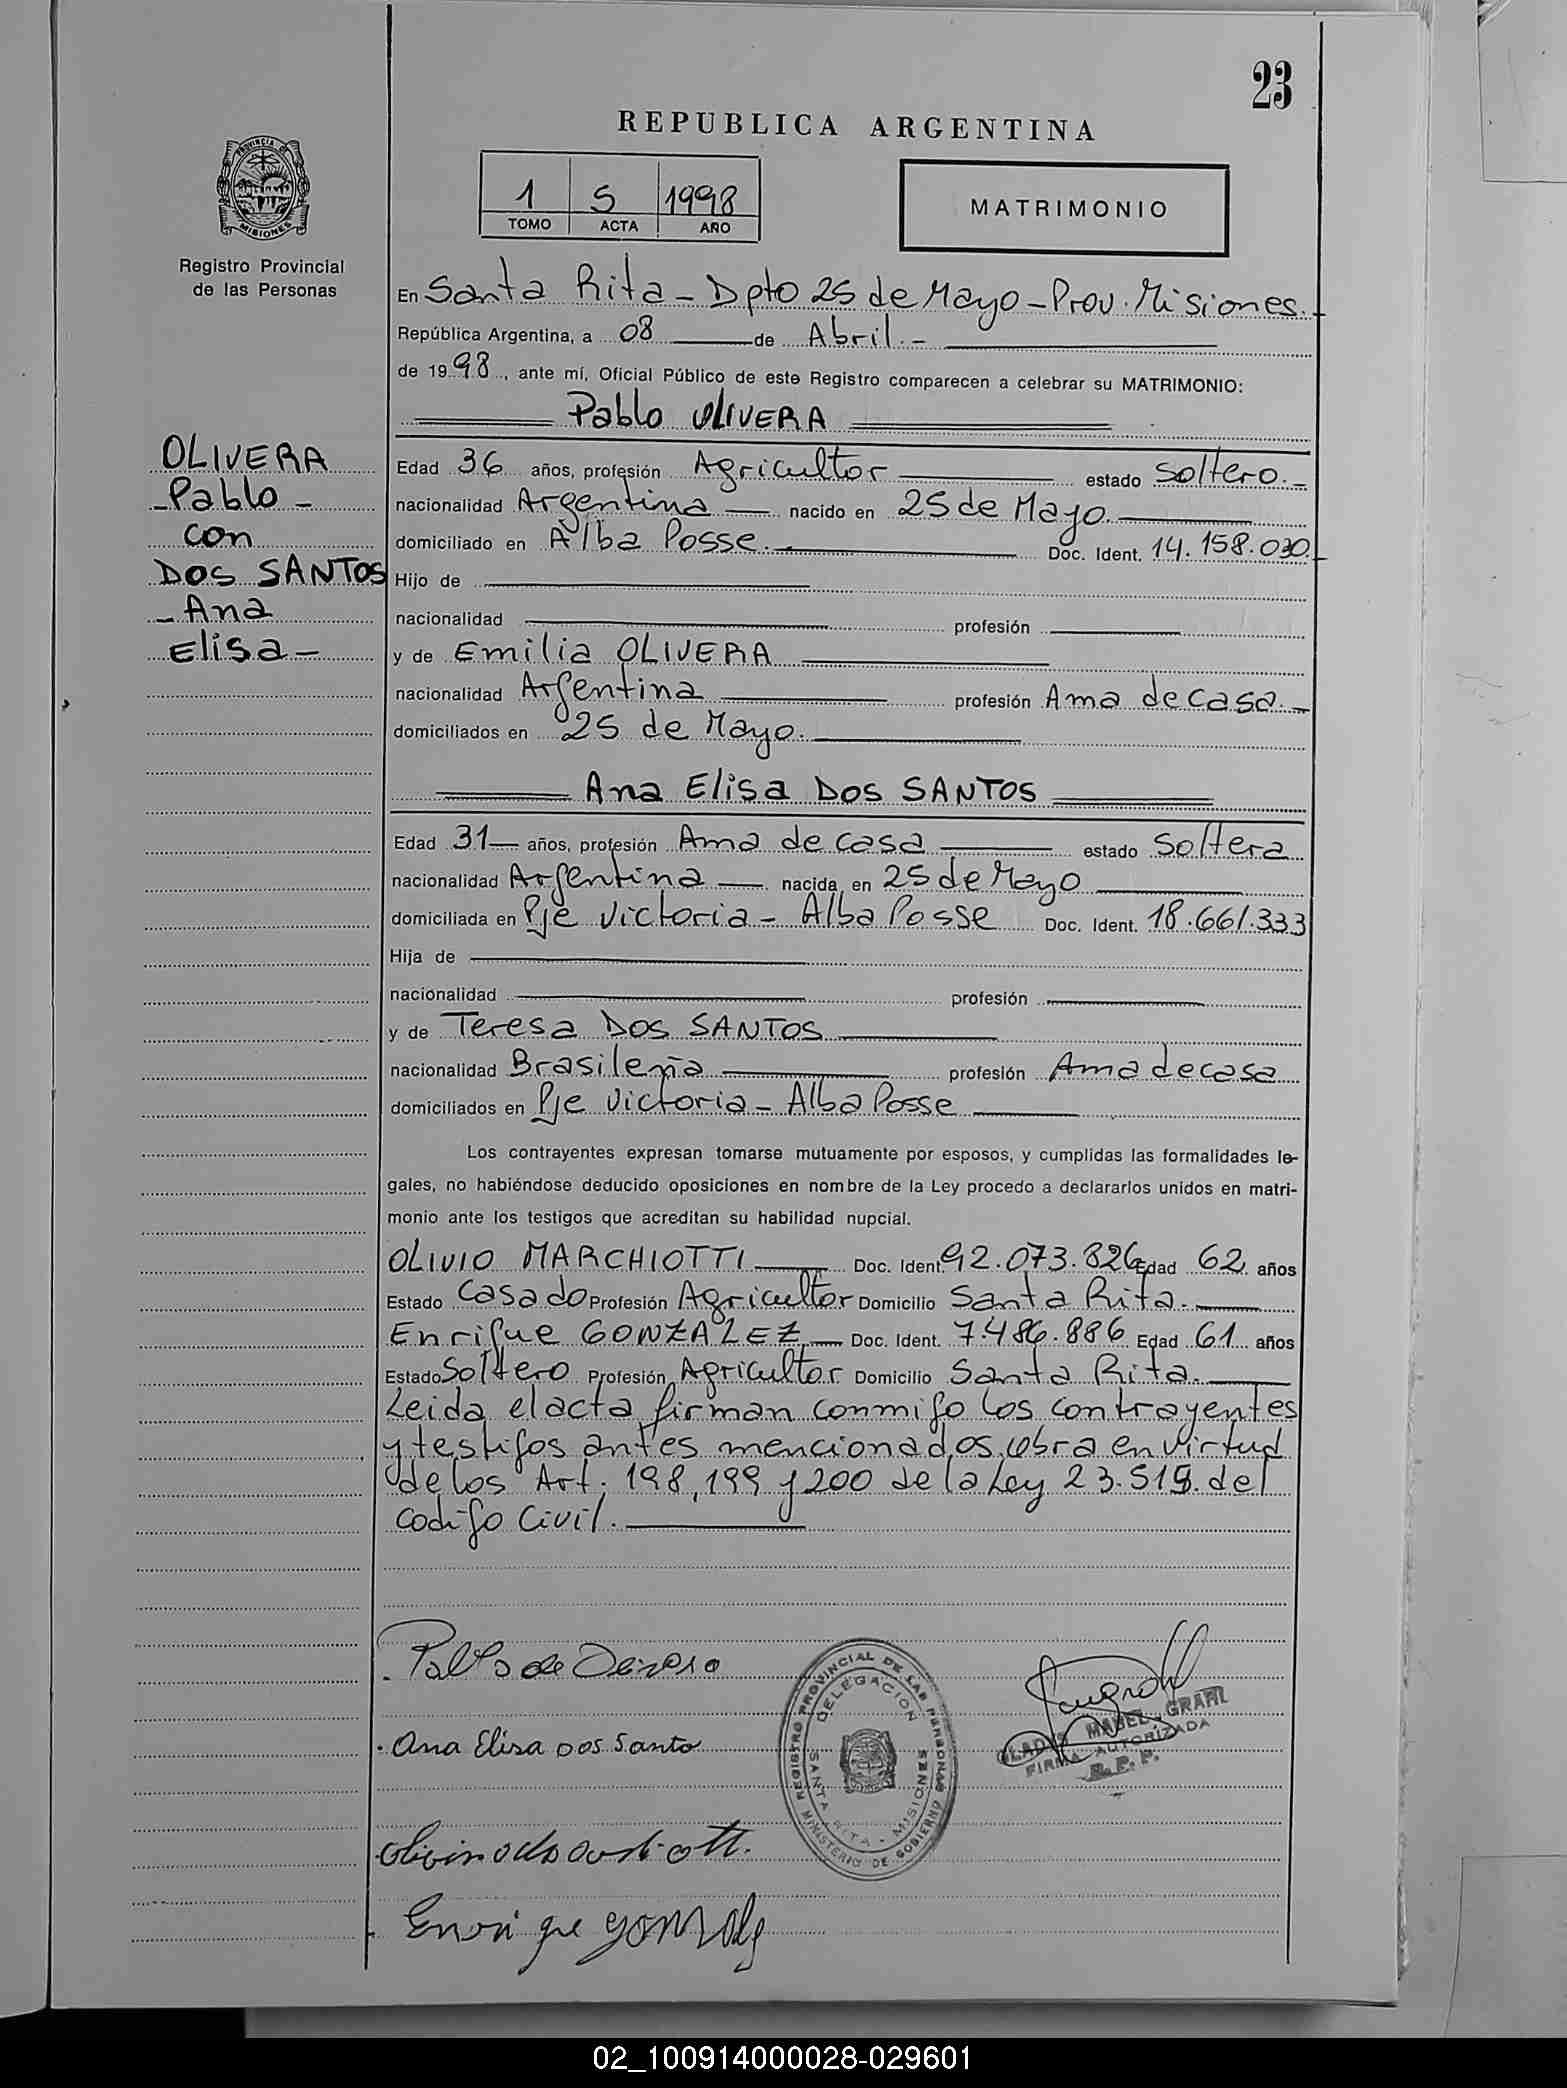 23
REPUBLICA ARGENTINA
1 5 1998
TOMO ACTA AÑO
MATRIMONIO
PROVINCIA DE MISIONES
Registro Provincial
de las Personas
En Santa Rita - Dpto 25 de Mayo - Prov. Misiones.
República Argentina, a 08 de Abril.-
de 1998, ante mí, Oficial Público de este Registro comparecen a celebrar su MATRIMONIO:
Pablo OLIVERA
OLIVERA
- Pablo -
con
DOS SANTOS
- Ana
Elisa -
Edad 36 años, profesión Agricultor estado Soltero.-
nacionalidad Argentina nacido en 25 de Mayo.
domiciliado en Alba Posse. Doc. Ident. 14.158.030
Hijo de
nacionalidad profesión
y de Emilia OLIVERA
nacionalidad Argentina profesión Ama de casa.-
domiciliados en 25 de Mayo.
Ana Elisa DOS SANTOS
Edad 31 años, profesión Ama de casa estado Soltera
nacionalidad Argentina nacida en 25 de Mayo
domiciliada en Pje Victoria - Alba Posse Doc. Ident. 18.661.333
Hija de
nacionalidad profesión
y de Teresa DOS SANTOS
nacionalidad Brasileña profesión Ama de casa
domiciliados en Pje Victoria - Alba Posse
Los contrayentes expresan tomarse mutuamente por esposos, y cumplidas las formalidades le-
gales, no habiéndose deducido oposiciones en nombre de la Ley procedo a declararlos unidos en matri-
monio ante los testigos que acreditan su habilidad nupcial.
OLIVIO MARCHIOTTI Doc. Ident. 92.073.826 Edad 62 años
Estado Casado Profesión Agricultor Domicilio Santa Rita.
Enrique GONZALEZ Doc. Ident. 7.486.886 Edad 61 años
Estado Soltero Profesión Agricultor Domicilio Santa Rita.
Leida el acta firman conmigo los contrayentes
y testigos antes mencionados, obra en virtud
de los Art. 198, 199 y 200 de la Ley 23.515. del
codigo Civil.
Ana Elisa Dos Santo
Enrique
REGISTRO PROVINCIAL DE LAS PERSONAS
MINISTERIO DE GOBIERNO
DELEGACION
SANTA RITA - MISIONES
GLADIS MABEL GRAHL
FIRMA AUTORIZADA
R. P. P.
02_100914000028-029601